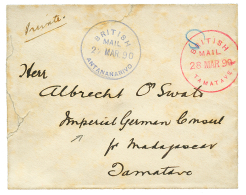 Private.
BRITISH
MAIL
23 MAR. 90
ANTANANARIVO
BRITISH
MAIL
26 MAR. 90
TAMATAVE
Herr
Albrecht O'Swald
Imperial German Consul
for Madagascar
Tamatave